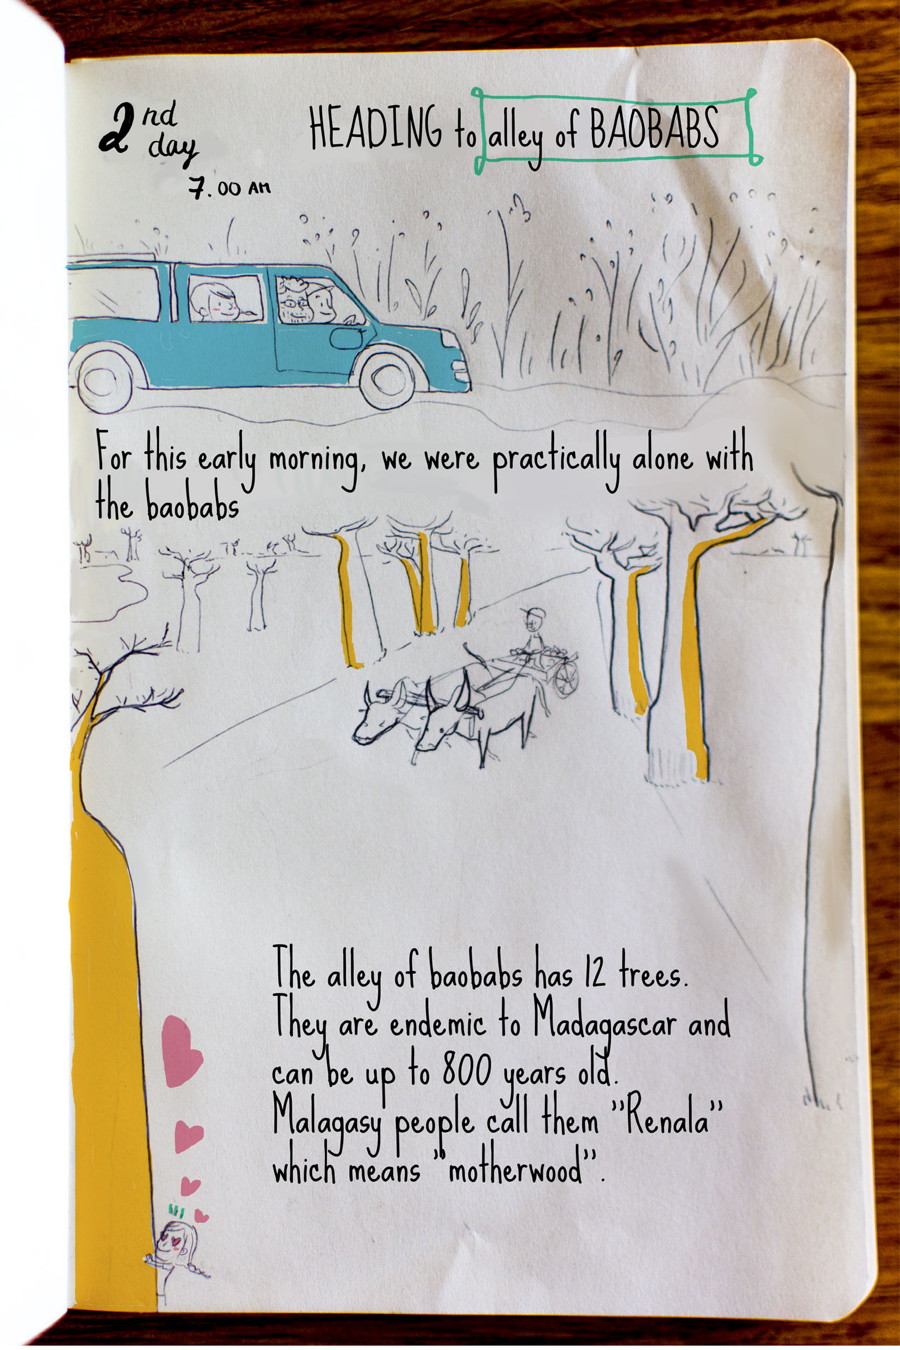 2nd
day
7.00 AM
HEADING to alley of BAOBABS
For this early morning, we were practically alone with
the baobabs
The alley of baobabs has 12 trees.
They are endemic to Madagascar and
can be up to 800 years old.
Malagasy people call them "Renala"
which means "motherwood".